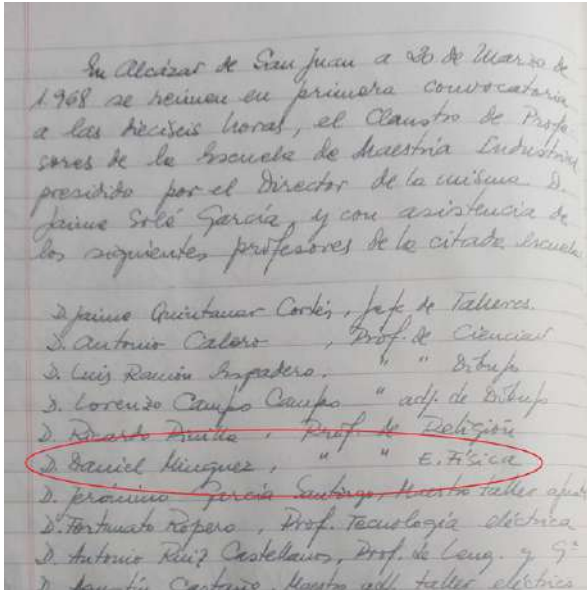 En Alcázar de San Juan a 20 de Marzo de
1.968 se reunen en primera convocatoria
a las dieciseis horas, el Claustro de Profe-
sores de la Escuela de Maestría Industrial
presidido por el Director de la misma D.
Jaime Solé García, y con asistencia de
los siguientes profesores de la citada escuela
D. Jaime Quintanar Cortés, Jefe de Talleres.
D. Antonio Calero , Prof. de Ciencias
D. Luis Ramón Espadero. " " Dibujo
D. Lorenzo Campo Campo " adj. de Dibujo
D. Ricardo Pinilla , Prof. de Religión
D. Daniel Minguez, " " E. Física
D. Jerónimo García Santiago, Maestro taller
D. Fortunato Ropero , Prof. Tecnología eléctrica
D. Antonio Ruiz Castellanos, Prof. de Leng. y Gª
D. Agustín Castaño, Maestro adj. taller eléctrica